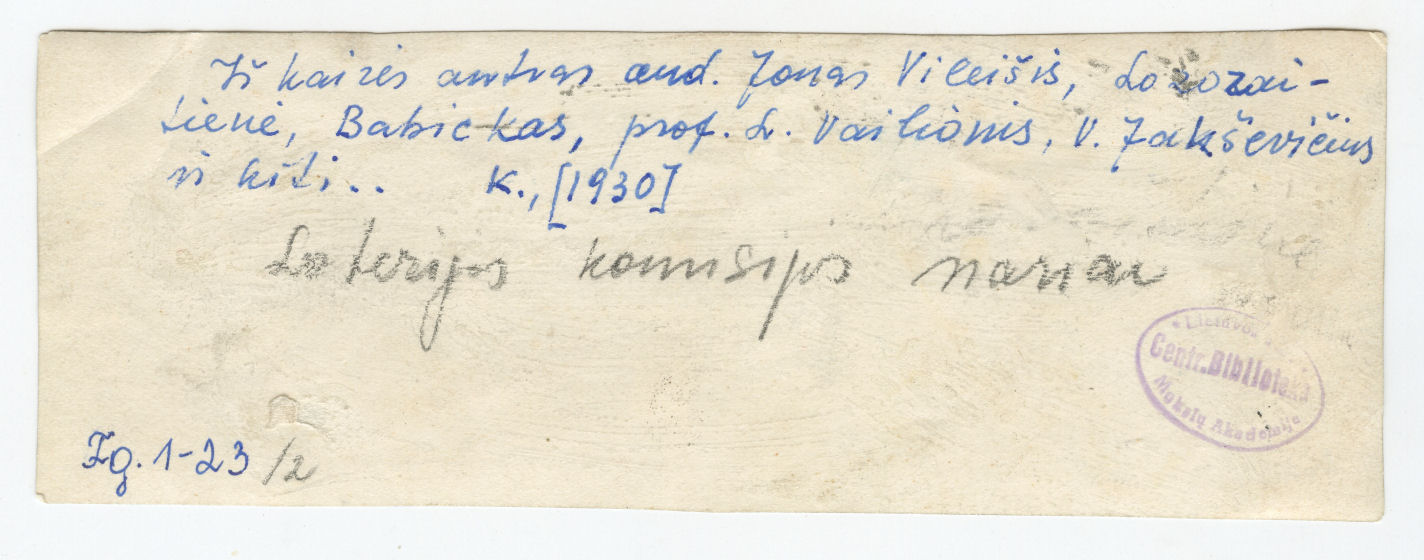 Iš kairės antras aud. Jonas Vileišis, Lozorai-
tienė, Babickas, prof. L. Vailionis, V. Jakševičius
ir kiti.. K., [1930]
Loterijos komisijos nariai
Lietuvos
Centr. Biblioteka
Mokslų Akademija
Fg. 1-23/2